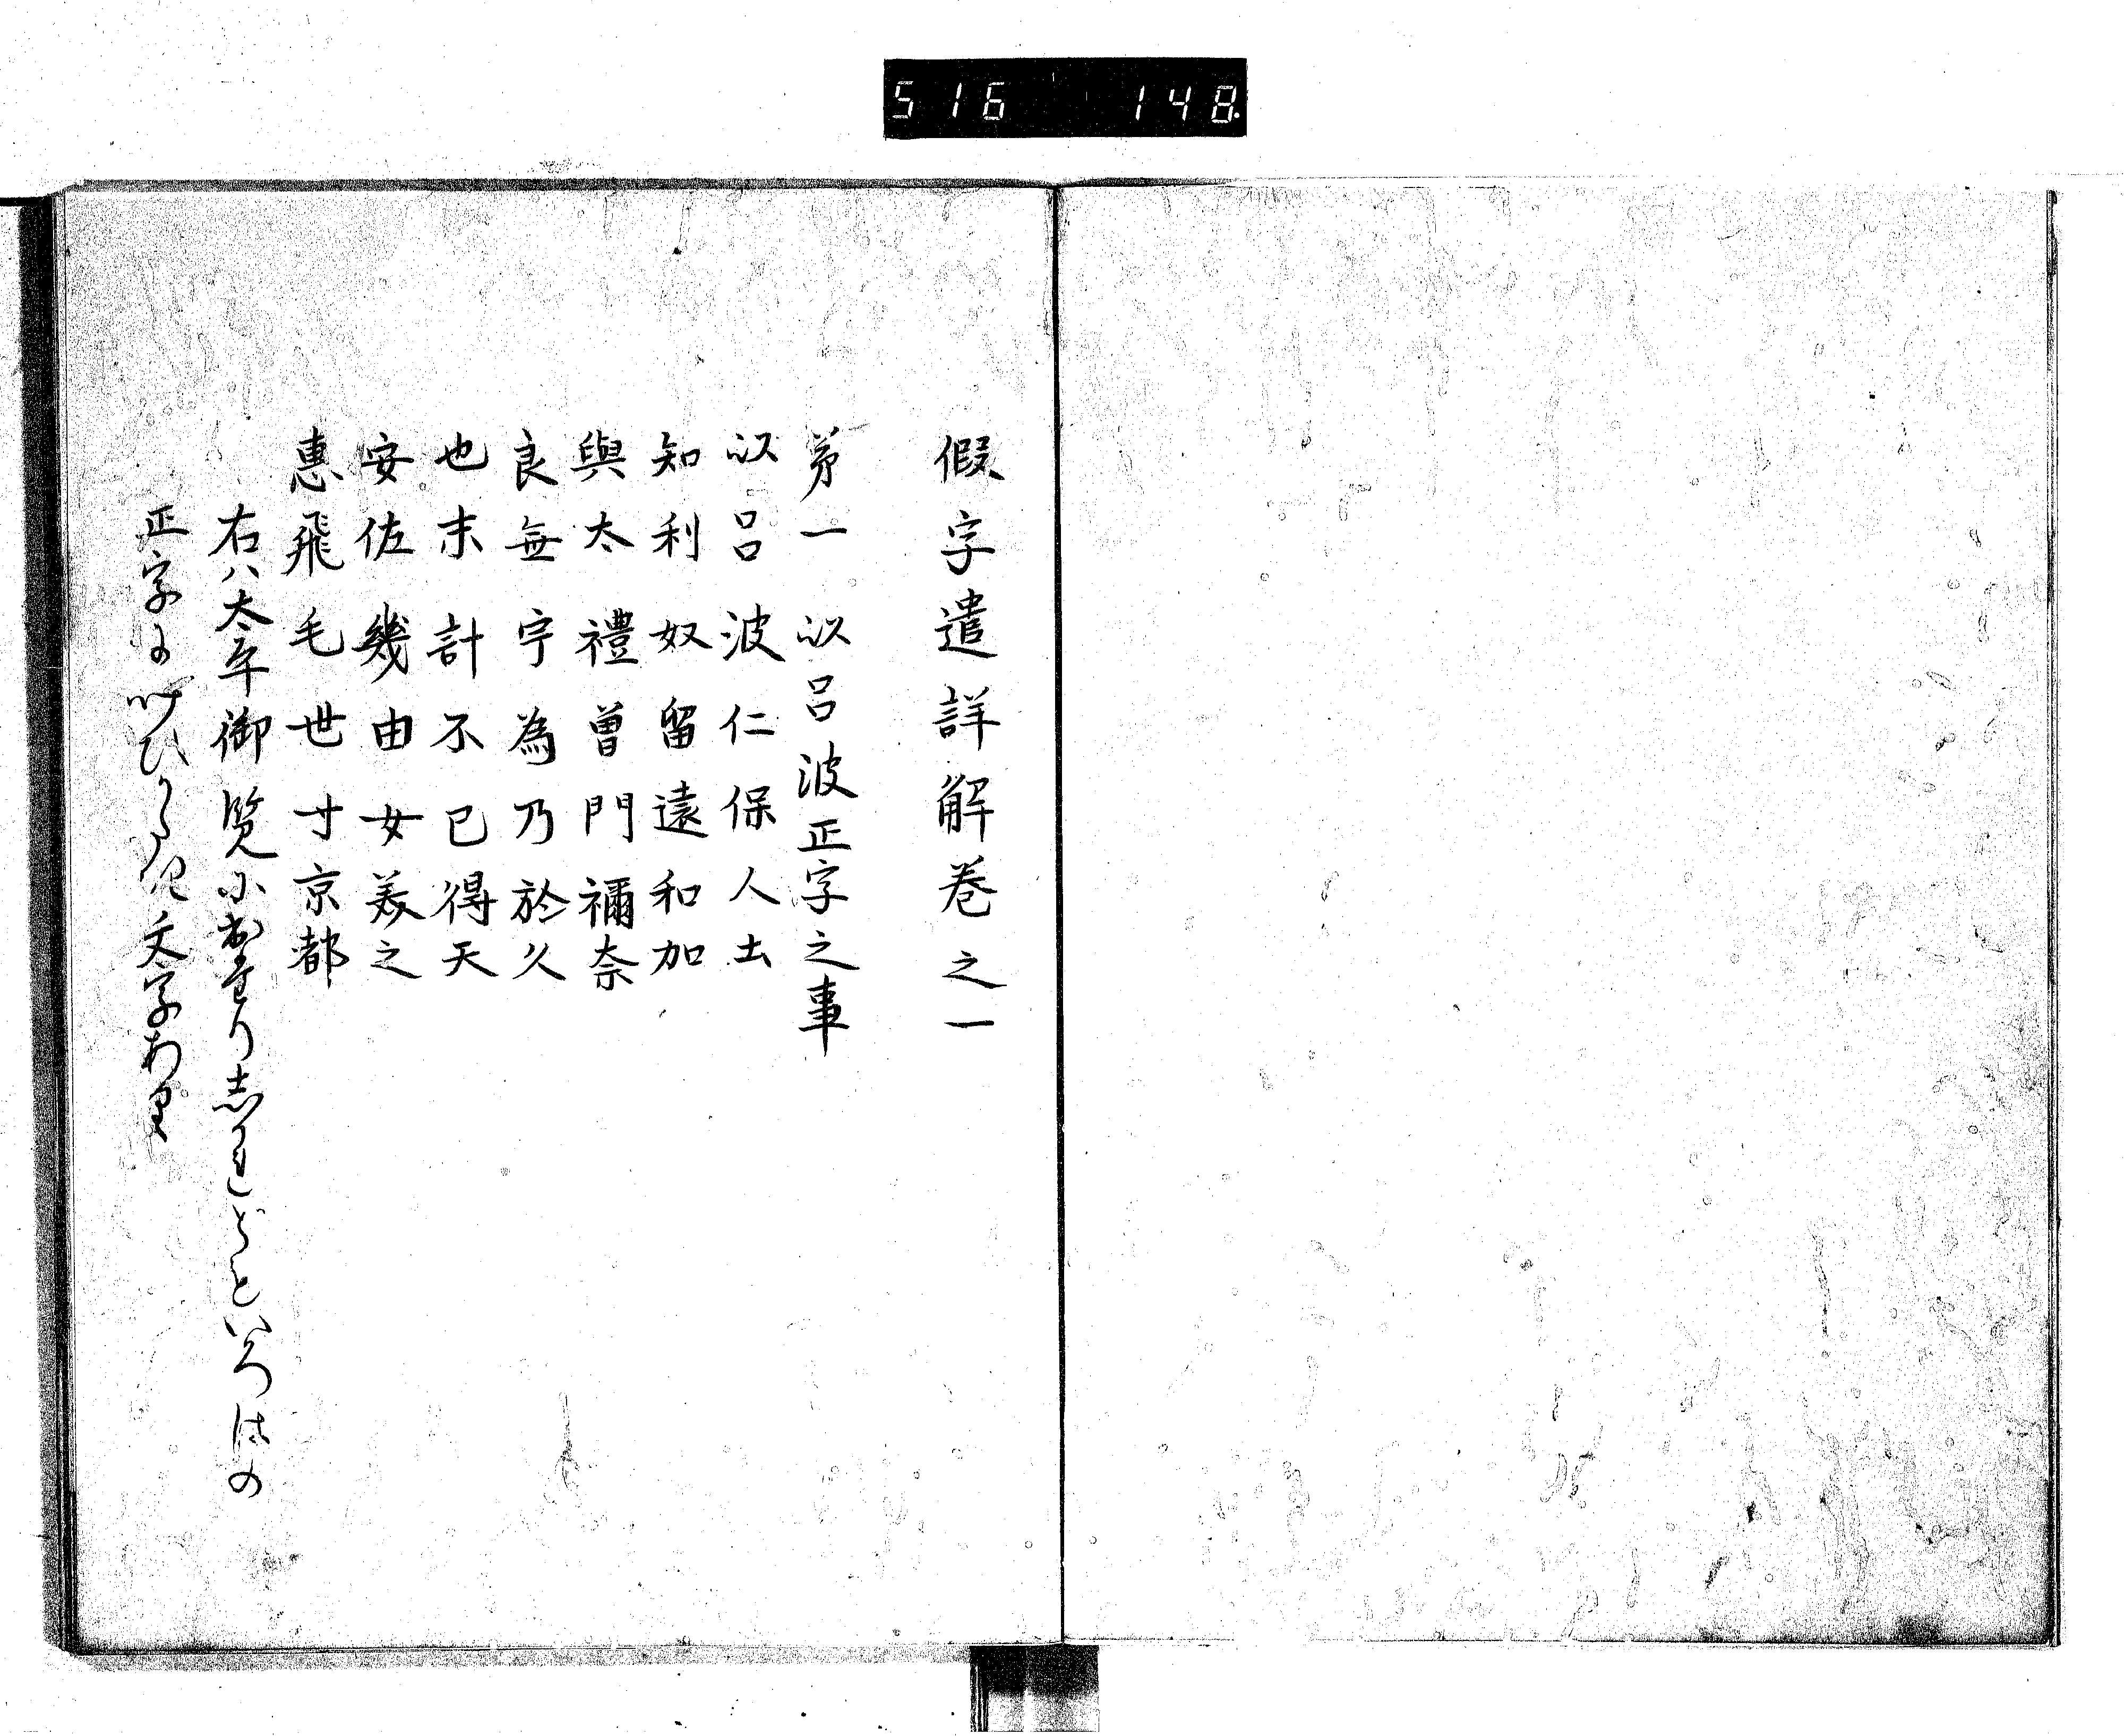 516 148
假字遣詳解巻之一
第一 以呂波正字之事
以呂波仁保人土
知利奴留遠和加
與太禮曽門禰奈
良無宇為乃於久
也末計不已得天
安佐幾由女美之
惠飛毛世寸京都
右ハ太平御覧に出たり志かれどもといろはの
正字にハひか多起文字あり